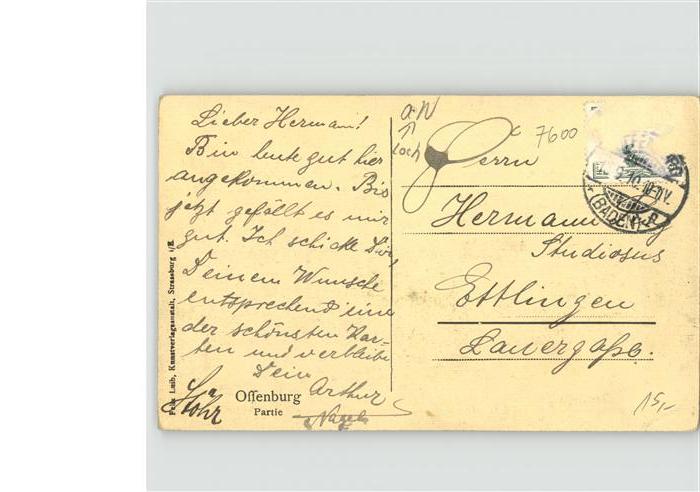 Lieber Hermann!
Bin heute gut hier
angekommen. Bis
jetzt gefällt es mir
gut. Ich schicke Dir
Deinem Wunsche
entsprechend eine
der schönsten Kar-
ten und verbleibe
Dein
Arthur
Nagel
Stohr
Offenburg
Partie
Felix Luib, Kunstverlagsanstalt, Strassburg i/E.
a. W
↑
Loch
7600
Herrn
Hermann
Studiosus
Ettlingen
Lauergaße.
10-11V.
BADEN
15,-